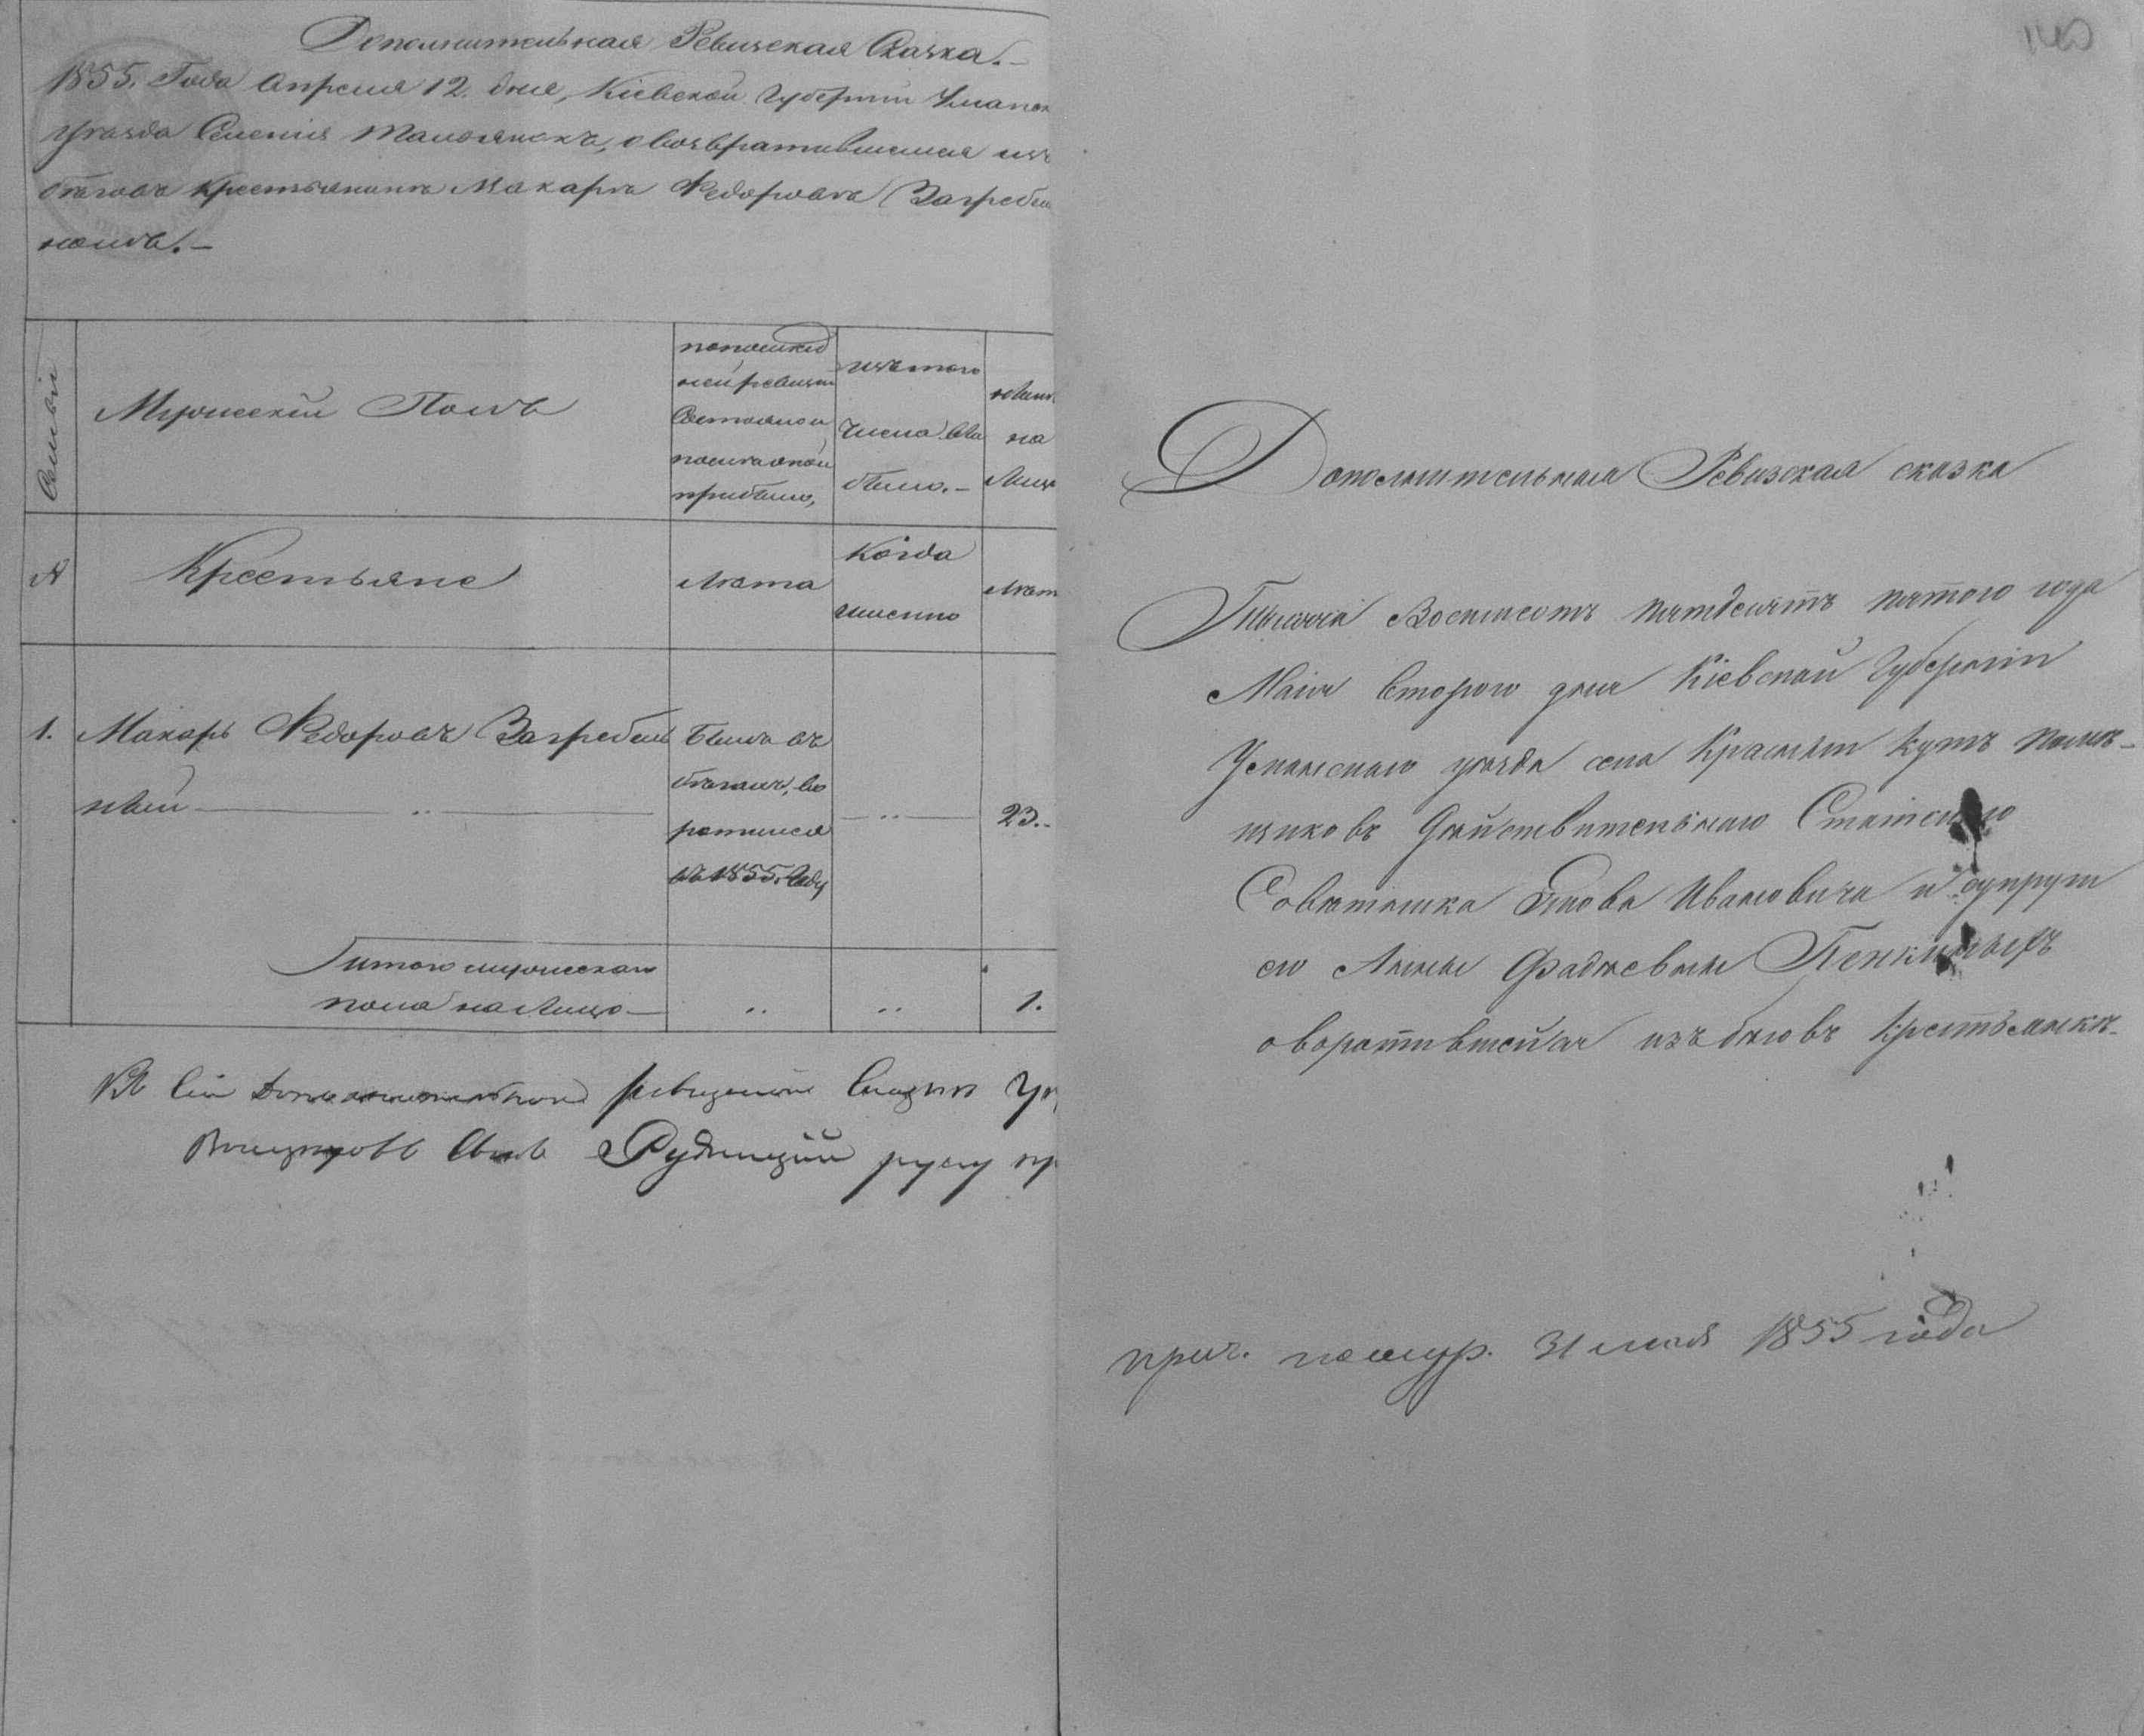 Дополнительная Ревизская Сказка.–
1855. Года Апреля 12. дня, Кіевской Губерніи Уманск
уѣзда Селенія Тальянокъ, о возвратившемся изъ
бѣговъ крестьянинѣ Макарѣ Федоровѣ Загребель
номъ.–
Семьи
Мужескій Полъ
по послѣд
ней ревизіи
Состояло и
послѣ оной
прибыло,
изъ того
числа вы
было.–
нынѣ
на
Лицо
№
Крестьяне
лѣта
Когда
именно
лѣт
1. Макаръ Федоровъ Загребель
ный — „ —
Былъ въ
бѣгахъ, во
ротился
въ 1855. Году
— „ —
23.–
Итого мужеска
пола на Лицо —
„
„
1.
Къ сей дополнительной ревизской сказки
Рудницкій руку пр
140
Дополнительная Ревизская сказка
Тысяча Восемсотъ пятдесятъ пятого года
Мая второго дня Кіевской Губерніи
Уманского уѣзда села Красный кутъ помѣ-
щиковъ Дѣйствительного Статского
Совѣтника Якова Ивановича и супруги
его Анны Фадѣевны
о воротившейся изъ бѣговъ крестьянкѣ
31 мая 1855 года